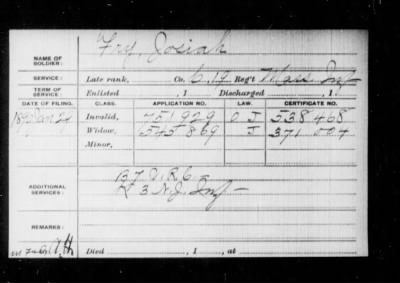 NAME OF SOLDIER: Fry, Josiah
SERVICE: Late rank, Co. C, 19 Reg't Mass Inf
TERM OF SERVICE: Enlisted , 1 Discharged , 1
DATE OF FILING. CLASS. APPLICATION NO. LAW. CERTIFICATE NO.
Jan 24 Invalid, 751929 J 538468
Widow, 545869 J 371004
Minor,
ADDITIONAL SERVICES: 137 V.R.C.
K 3 N.J. Inf
REMARKS:
Died , 1 , at